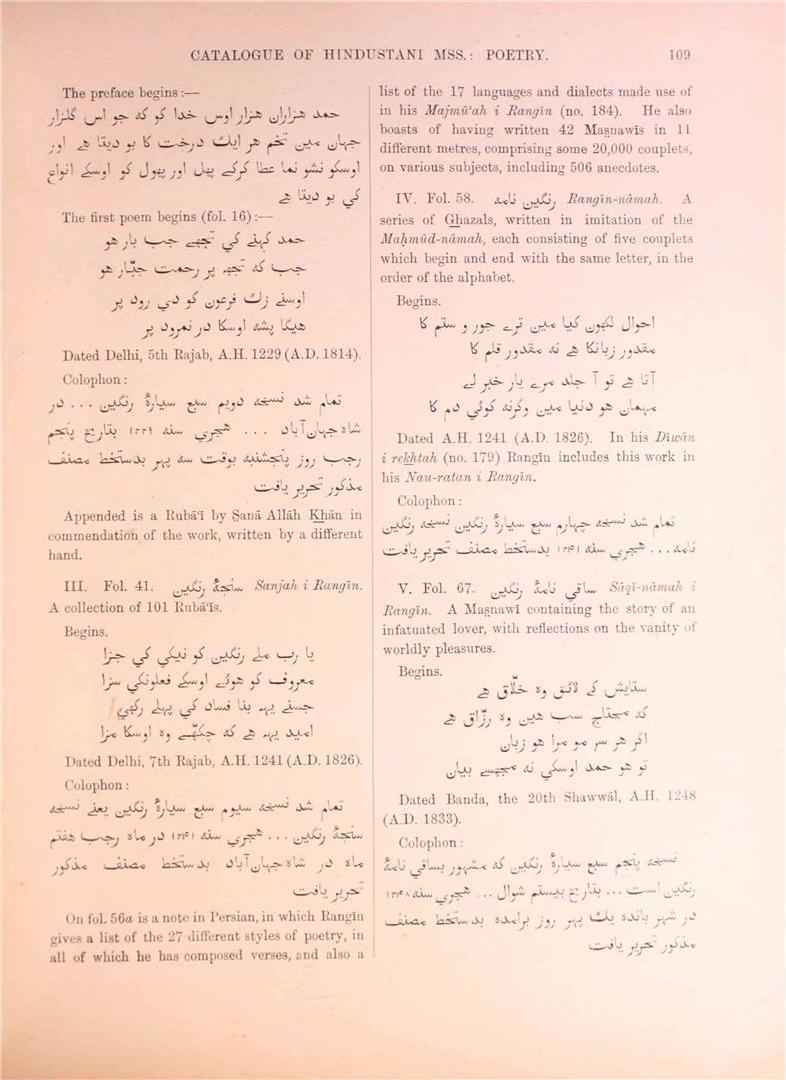 CATALOGUE OF HINDUSTANI MSS.: POETRY. 109
The preface begins :—
حمد هزاران هزار اوس خدا کو که جو اس گلزار
جهان مین تخم هر ایك درخت کا بو دیتا هے اور
اوسکو نشو نما عطا کرکے پهل اور پهول کو اوسکے انواع
کي بو دیتا هے
The first poem begins (fol. 16) :—
حمد کهنے کي تجهے جب بار هو
جب که تجهه پر رحمت جبّار هو
اوسنے زك فرعون کو دي رود پر
هیگا پشه اوسکا در نمرود پر
Dated Delhi, 5th Rajab, A.H. 1229 (A.D. 1814).
Colophon :
تمام شد نسخه دویم سبع سیارۀ رنگین ... در
شاه جهان‌آباد ... هجري سنه ۱۲۲۹ بتاریخ پنجم
رجب روز پنجشنبه بوقت سه پهر بدستخط مصنف
مذکور تحریر یافت
Appended is a Rubā‘ī by S̱anā Allāh Khān in
commendation of the work, written by a different
hand.
III. Fol. 41. سنجۀ رنگین Sanjah i Rangīn.
A collection of 101 Rubā‘īs.
Begins.
یا رب ملے رنگین کو نیکي کي جزا
معروف کو هوئے اوسکے فعلونکي سزا
جسنے یهه بنا فساد کي پهلے رکهي
امید یهه هے که چکّهے وه اوسکا مزا
Dated Delhi, 7th Rajab, A.H. 1241 (A.D. 1826).
Colophon :
تمام شد نسخه سیوم سبع سیارۀ رنگین یعنے نسخه
سنجۀ رنگین ... هجري سنه ۱۲۴۱ در ماه رجب هفتم
ماه در شاه جهان‌آباد بدستخط مصنف مذکور
تحریر یافت
On fol. 56a is a note in Persian, in which Rangīn
gives a list of the 27 different styles of poetry, in
all of which he has composed verses, and also a
list of the 17 languages and dialects made use of
in his Majmū‘ah i Rangīn (no. 184). He also
boasts of having written 42 Mas̱nawīs in 11
different metres, comprising some 20,000 couplets,
on various subjects, including 506 anecdotes.
IV. Fol. 58. رنگین نامه Rangīn-nāmah. A
series of Ghazals, written in imitation of the
Maḥmūd-nāmah, each consisting of five couplets
which begin and end with the same letter, in the
order of the alphabet.
Begins.
احوال لکهون کیا مین ترے جور و ستم کا
مقدور زبانکا هے نه مقدور قلم کا
آتا هے تو آ جلد مرے یار خبر لے
مهمان هو دنیا مین وگرنه کوئي دم کا
Dated A.H. 1241 (A.D. 1826). In his Dīwān
i rekhtah (no. 179) Rangīn includes this work in
his Nau-ratan i Rangīn.
Colophon :
تمام شد نسخه چهارم سبع سیارۀ رنگین نسخه رنگین
نامه ... هجري سنه ۱۲۴۱ بدستخط مصنف تحریر یافت
V. Fol. 67. ساقي نامۀ رنگین Sāqī-nāmah i
Rangīn. A Mas̱nawī containing the story of an
infatuated lover, with reflections on the vanity of
worldly pleasures.
Begins.
ستایش کے لائق وه خلّاق هے
که محتاج سب هین وه رزّاق هے
اگر هر سر مو مرا هو زبان
تو هو حمد اوسکي نه مجهسے بیان
Dated Banda, the 20th Shawwāl, A.H. 1248
(A.D. 1833).
Colophon :
نسخه پنجم سبع سیارۀ رنگین که مشهور بساقي نامۀ
رنگین است ... بتاریخ بیستم شوال ... هجري سنه ۱۲۴۸
در شهر بانده یك پهر روز برامده بدستخط مصنف
مذکور تحریر یافت